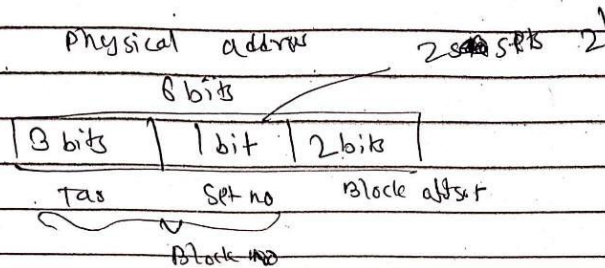 Physical address 2 sets 2¹
6 bits
3 bits 1 bit 2 bits
Tag Set no Block offset
Block no